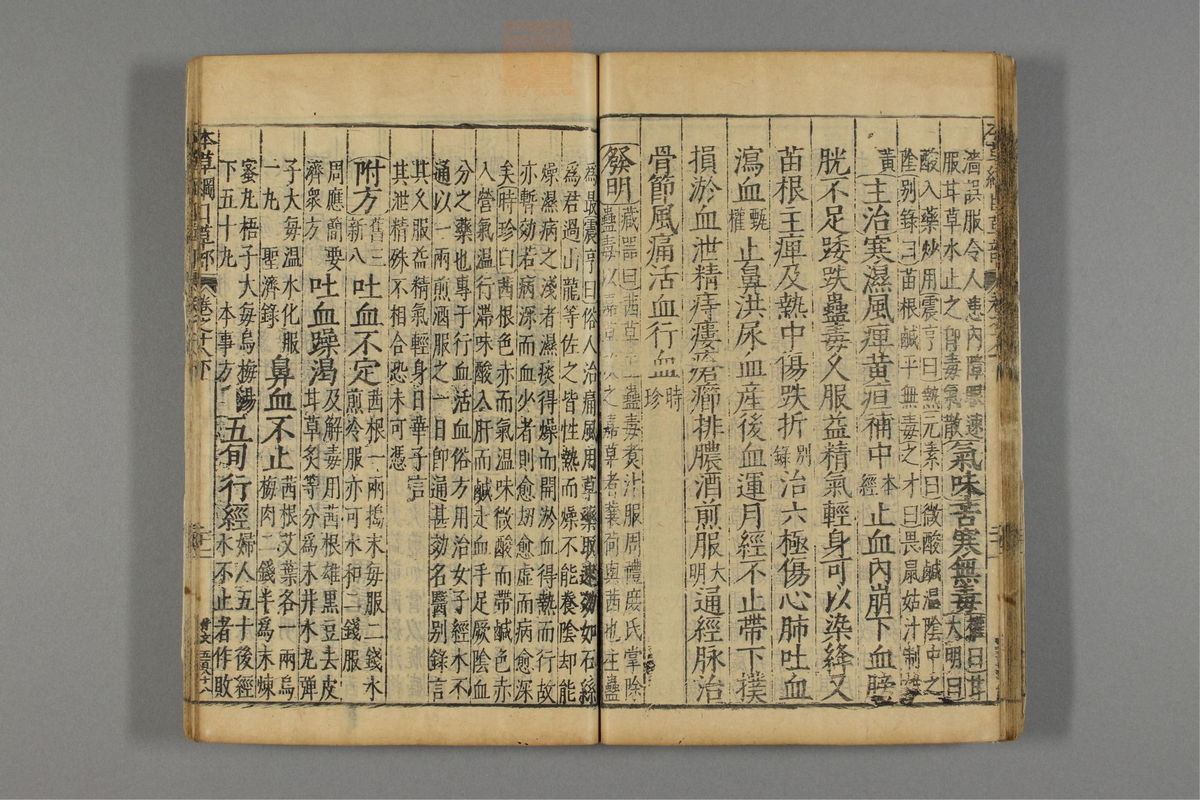 濇誤服令人患內障眼速
服甘草水止之即毒氣散
氣味苦寒無毒
權曰甘
大明曰
酸入藥炒用震亨曰熱元素曰微酸鹹溫陰中之
陰別錄曰苗根鹹平無毒之才曰畏鼠姑汁制雄
黃
主治寒濕風痺黃疸補中
本
經
止血內崩下血膀
胱不足踒跌蠱毒久服益精氣輕身可以染絳又
苗根主痺及熱中傷跌折
別
錄
治六極傷心肺吐血
瀉血
甄
權
止鼻洪尿血產後血運月經不止帶下撲
損淤血泄精痔瘻瘡癤排膿酒煎服
大
明
通經脈治
骨節風痛活血行血
時
珍
發明
藏器曰茜草主蠱毒煑汁服周禮庶氏掌除
蠱毒以嘉草攻之嘉草者蘘荷與茜也主蠱
為最震亨曰俗人治痛風用草藥取速效如石絲
為君過山龍等佐之皆性熱而燥不能養陰却能
燥濕病之淺者濕痰得燥而開淤血得熱而行故
亦暫効若病深而血少者則愈劫愈虛而病愈深
矣時珍曰茜根色赤而氣溫味微酸而帶鹹色赤
入營氣溫行滯味酸入肝而鹹走血手足厥陰血
分之藥也專于行血活血俗方用治女子經水不
通以一兩煎酒服之一日即通甚効名醫別錄言
其久服益精氣輕身日華子言
其泄精殊不相合恐未可憑
附方
舊三
新八
吐血不定
茜根一兩搗末每服二錢水
煎冷服亦可水和二錢服
周應簡要
濟衆方
吐血躁渴
及解毒用茜根雄黑豆去皮
甘草炙等分為末井水丸彈
子大每溫水化服
一丸　聖濟錄
鼻血不止
茜根艾葉各一兩烏
梅肉二錢半為末煉
蜜丸梧子大每烏梅湯
下五十丸　本事方
五旬行經
婦人五十後經
水不止者作敗
本草綱目草部　卷之十八下